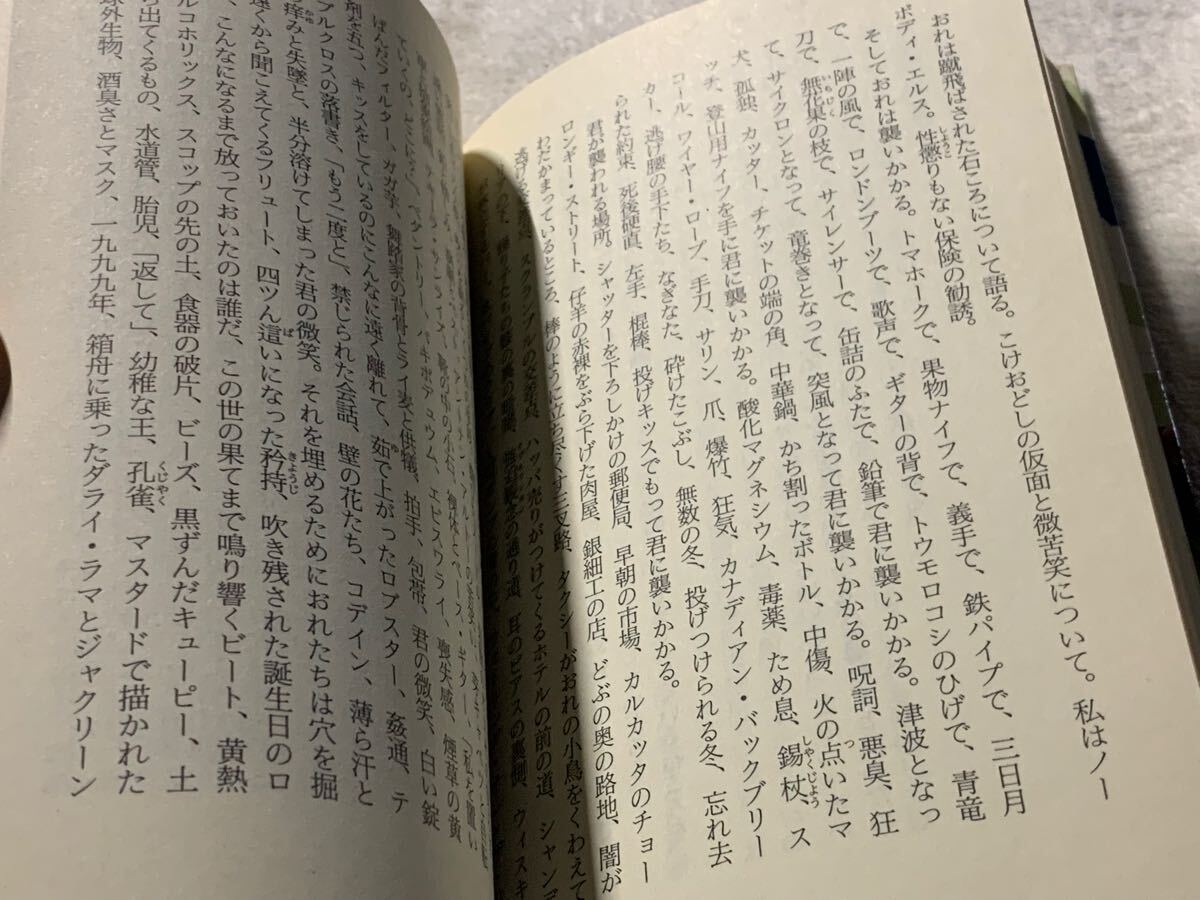 おれは蹴飛ばされた石ころについて語る。こけおどしの仮面と微苦笑について。私はノー
ボディ・エルス。性懲りもない保険の勧誘。
そしておれは襲いかかる。トマホークで、果物ナイフで、義手で、鉄パイプで、三日月
で、一陣の風で、ロンドンブーツで、歌声で、ギターの背で、トウモロコシのひげで、青竜
刀で、無花果の枝で、サイレンサーで、缶詰のふたで、鉛筆で君に襲いかかる。津波となっ
て、サイクロンとなって、竜巻きとなって、突風となって君に襲いかかる。呪詞、悪臭、狂
犬、孤独、カッター、チケットの端の角、中華鍋、かち割ったボトル、中傷、火の点いたマ
ッチ、登山用ナイフを手に君に襲いかかる。酸化マグネシウム、毒薬、ため息、錫杖、ス
コール、ワイヤー・ロープ、手刀、サリン、爪、爆竹、狂気、カナディアン・バックブリー
カー、逃げ腰の手下たち、なぎなた、砕けたこぶし、無数の冬、投げつけられる冬、忘れ去
られた約束、死後硬直、左手、棍棒、投げキッスでもって君に襲いかかる。
君が襲われる場所。シャッターを下ろしかけの郵便局、早朝の市場、カルカッタのチョー
ロンギー・ストリート、仔羊の赤裸をぶら下げた肉屋、銀細工の店、どぶの奥の路地、闇が
わだかまっているところ、棒のように立ち尽くす三叉路、タクシーがおれの小鳥をくわえて
ハッパ売りがつけてくるホテルの前の道、シャンデ
の通り道、耳のピアスの裏側、ウィスキ
「私を置い
ていくの、
ペダントリー、
エピスワライ、喪失感、煙草の黄
ばんだフィルター、ガガ芋、舞踏家の背骨とライ麦と供犠、拍手、包帯、君の微笑、白い錠
剤を五つ、キッスをしているのにこんなに遠く離れて、茹で上がったロブスター、姦通、テ
ーブルクロスの落書き、「もう二度と」、禁じられた会話、壁の花たち、コデイン、薄ら汗と
痒みと失墜と、半分溶けてしまった君の微笑。それを埋めるためにおれたちは穴を掘
遠くから聞こえてくるフリュート、四ツん這いになった矜持、吹き残された誕生日のロ
、こんなになるまで放っておいたのは誰だ、この世の果てまで鳴り響くビート、黄熱
ルコホリックス、スコップの先の土、食器の破片、ビーズ、黒ずんだキューピー、土
ら出てくるもの、水道管、胎児、「返して」、幼稚な王、孔雀、マスタードで描かれた
球外生物、酒臭さとマスク、一九九九年、箱舟に乗ったダライ・ラマとジャクリーン